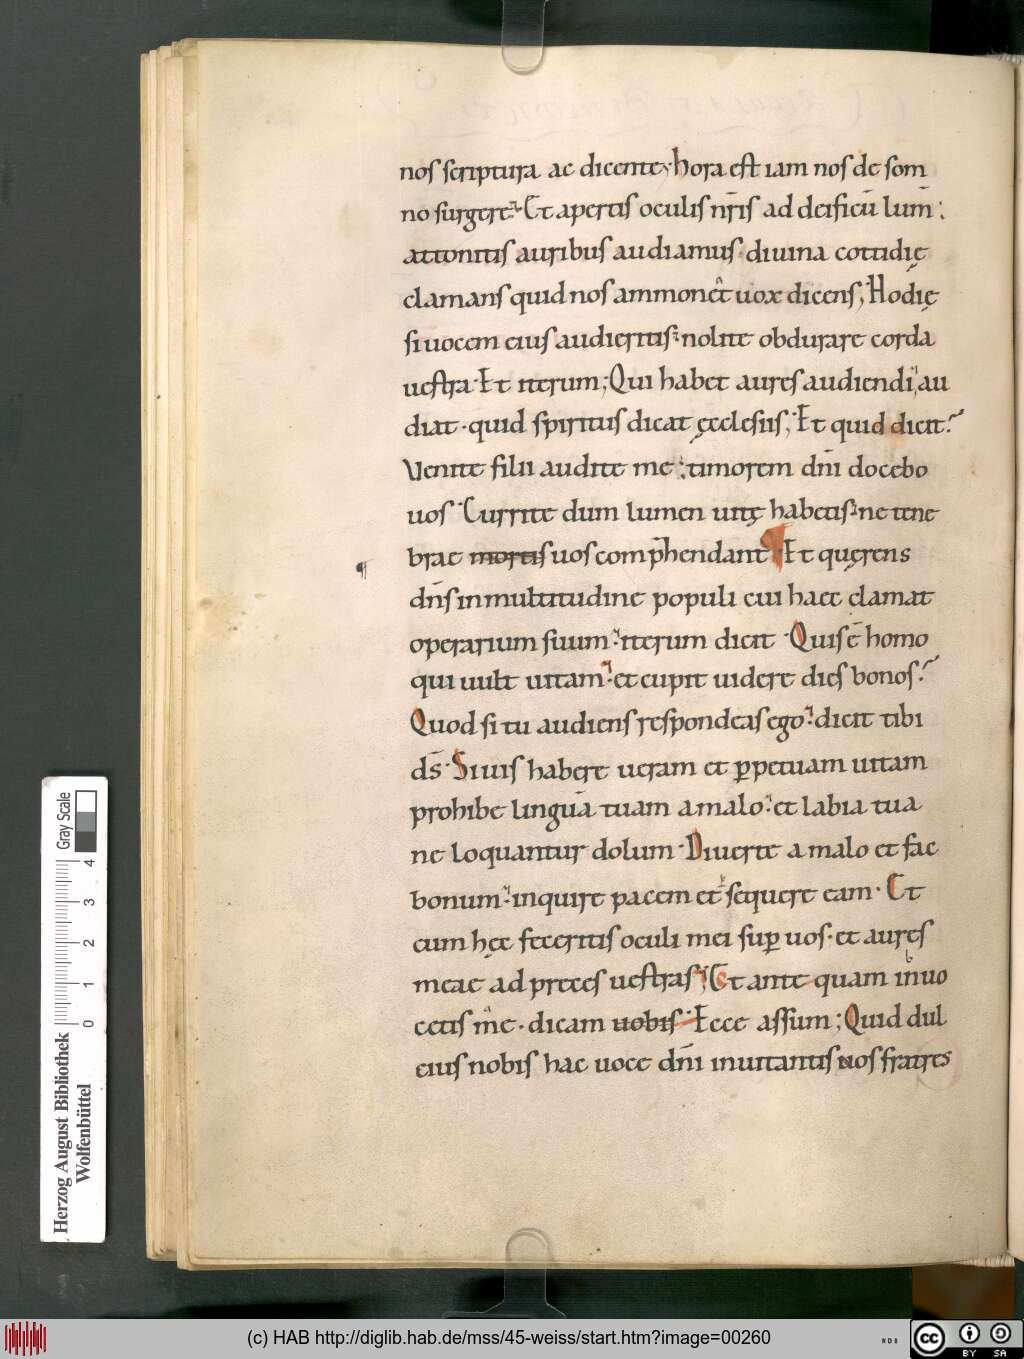 nos scriptura ac dicente; hora est iam nos de som
no surgere. Et apertis oculis nr̄is ad deificū lum̄.
attonitis auribus audiamus. diuina cottidię
clamans quid nos ammonet uox dicens; Hodię
si uocem eius audieritis. nolite obdurare corda
uestra. Et iterum; Qui habet aures audiendi, au
diat. quid spiritus dicat ęcclesiis; Et quid dicit?
Venite filii audite me. timorem dn̄i docebo
uos. Currite dum lumen uitę habetis. ne tene
¶ brae mortis uos comp̄hendant. Et quęrens
dn̄s in multitudine populi cui haec clamat
operarium suum. iterum dicit. Quis ē homo
qui uult uitam. et cupit uidere dies bonos?
Quod si tu audiens respondeas ego. dicit tibi
ds̄. Si uis habere ueram et ꝑpetuam uitam
prohibe linguā tuam a malo. et labia tua
ne loquantur dolum. Diuerte a malo et fac
bonum. inquire pacem et sequere eam. Et
cum hęc feceritis oculi mei suꝑ uos. et aures
meae ad preces uestras; Et ante quam inuo
cetis me. dicam uobis. Ecce assum; Quid dul
cius nobis hac uoce dn̄i inuitantis nos fratres
Herzog August Bibliothek
Wolfenbüttel
0 1 2 3 4
Gray Scale
(c) HAB http://diglib.hab.de/mss/45-weiss/start.htm?image=00260
cc BY SA